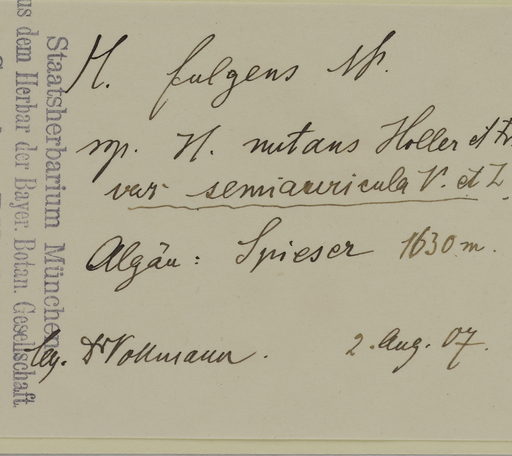 H. fulgens NP.
ssp. H. nutans Holler et
var semiauricula V. et Z.
Algäu: Spieser 1630 m.
leg. Dr Vollmann. 2. Aug. 07.
Staatsherbarium München
aus dem Herbar der Bayer. Botan. Gesellschaft